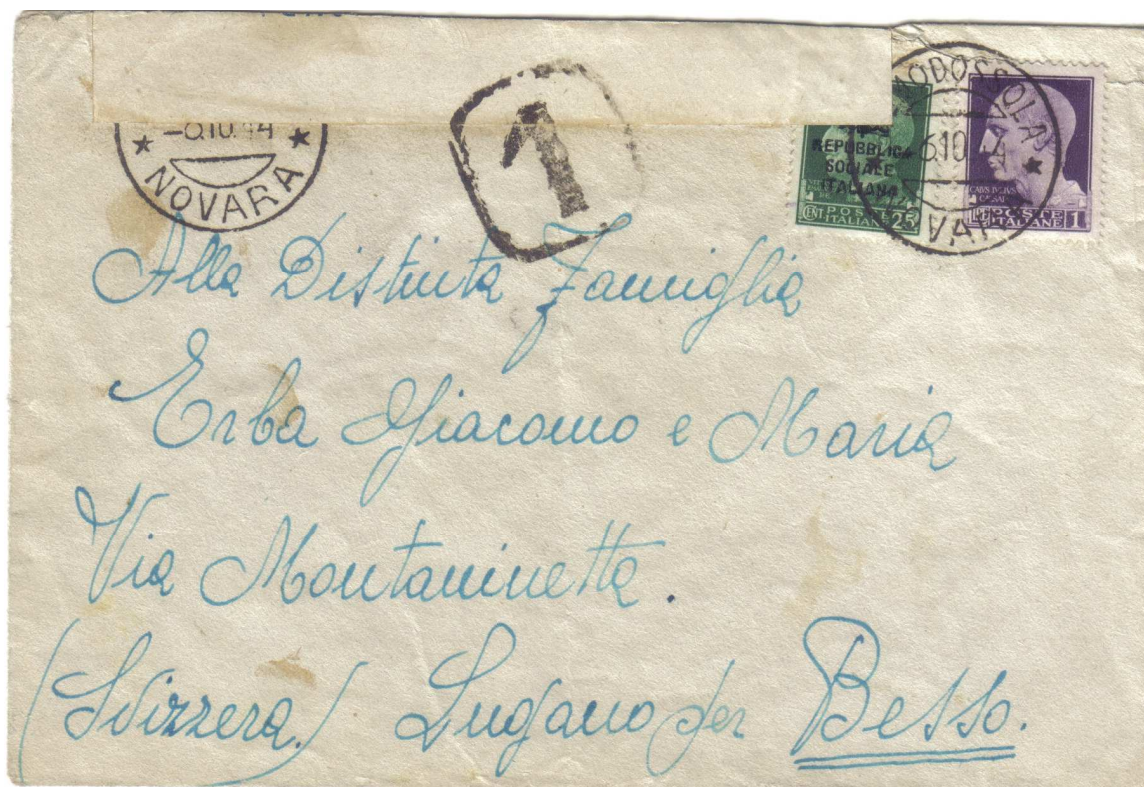 -6.10.44
NOVARA
1
REPUBBLICA
SOCIALE
ITALIANA
CENT POSTE 25
ITALIANE
DOMODOSSOLA
6.10.44
NOVARA
POSTE 1
ITALIANE
Alla Distinta Famiglia
Erba Giacomo e Maria
Via Montaninetta.
(Svizzera) Lugano per Besso.